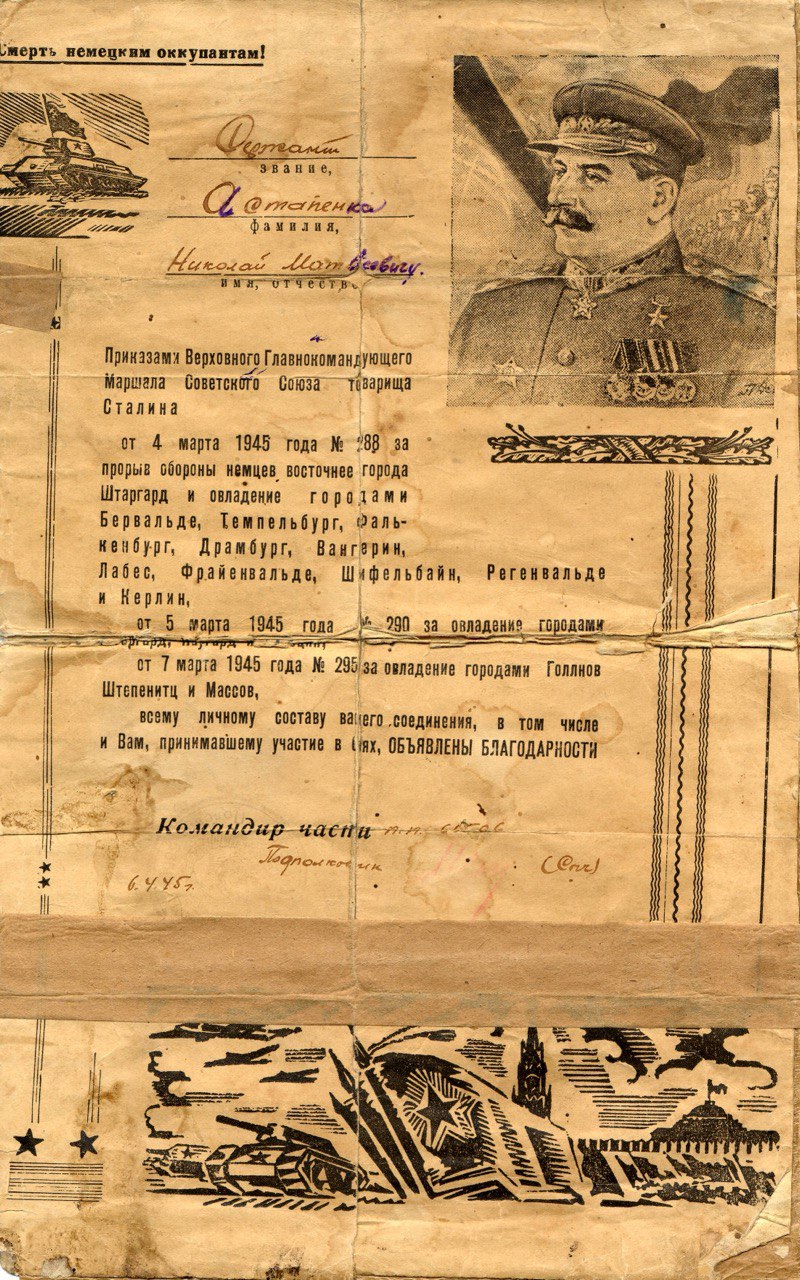 Смерть немецким оккупантам!
Сержант
звание,
Астапенка
фамилия,
Николай Матвеевичу.
имя, отчество
Приказами Верховного Главнокомандующего
Маршала Советского Союза товарища
Сталина
от 4 марта 1945 года № 288 за
прорыв обороны немцев восточнее города
Штаргард и овладение городами
Бервальде, Темпельбург, Фаль-
кенбург, Драмбург, Вангерин,
Лабес, Фрайенвальде, Шифельбайн, Регенвальде
и Керлин,
от 5 марта 1945 года № 290 за овладение городами
от 7 марта 1945 года № 295 за овладение городами Голлнов
Штепенитц и Массов,
всему личному составу вашего соединения, в том числе
и Вам, принимавшему участие в боях, ОБЪЯВЛЕНЫ БЛАГОДАРНОСТИ
Командир части п.п.
Подполковник
6.4.45г.